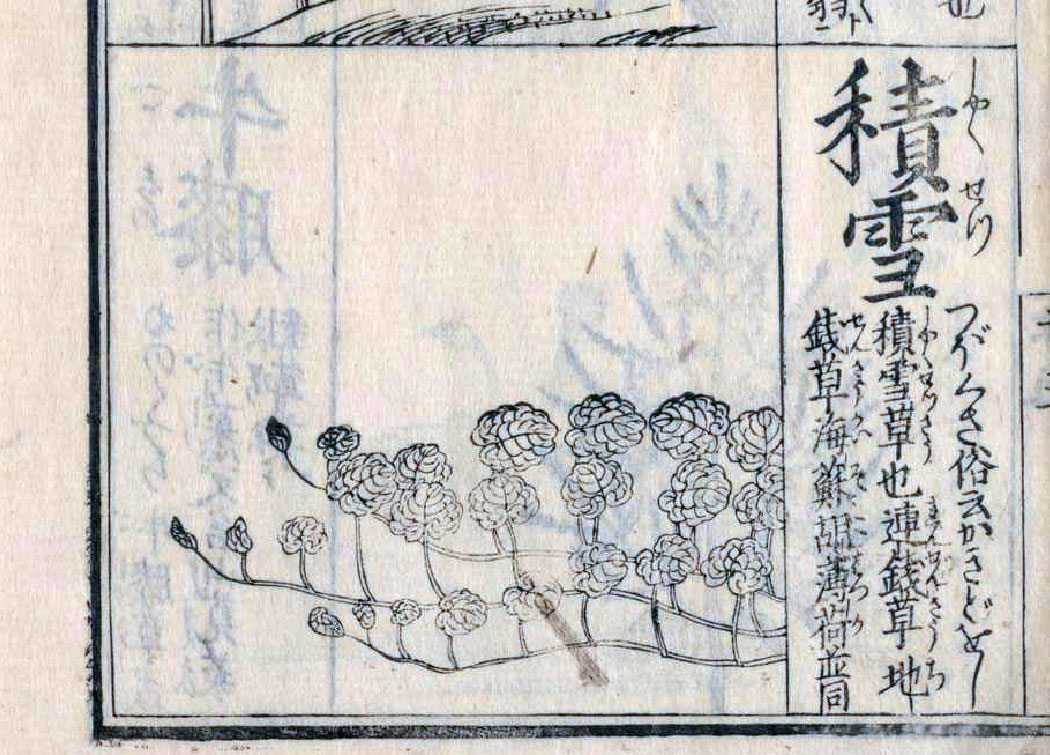 しやくせつ
積雪
つぼくさ俗云かきどをし
積雪草也連銭草地
銭草海蘇胡薄荷並同